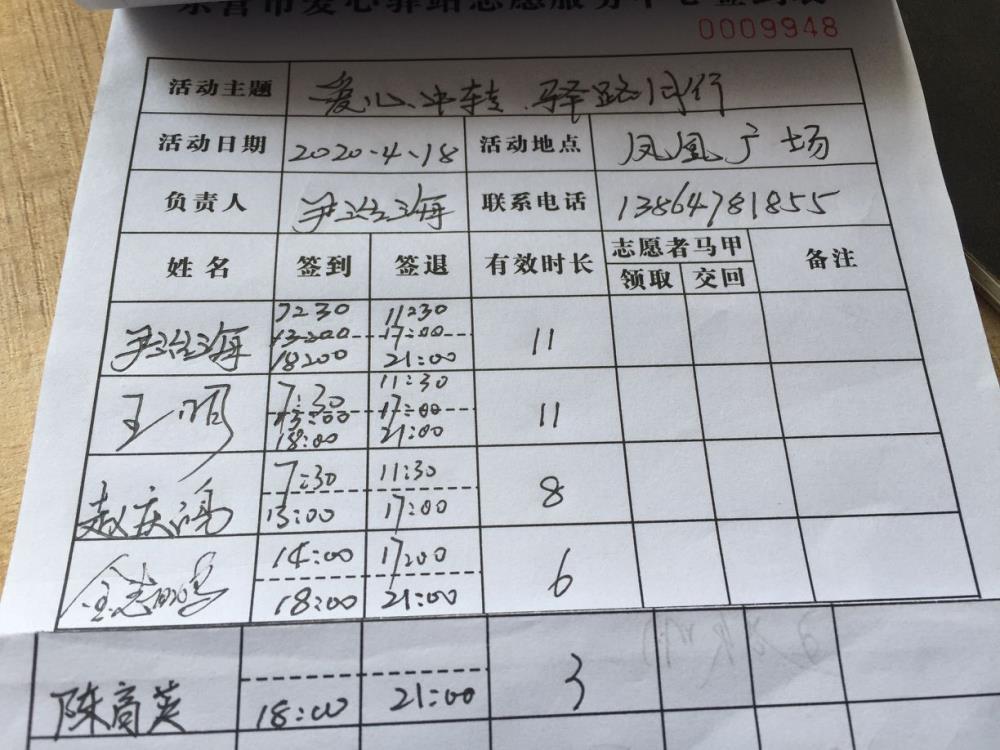 东营市爱心驿站志愿服务中心签到表
0009948
活动主题 爱心中转 驿路同行
活动日期 2020.4.18 活动地点 凤凰广场
负责人 尹治海 联系电话 13864781855
姓名 签到 签退 有效时长 志愿者马甲 备注
领取 交回
尹治海 7:30 11:30 11
13:00 17:00
18:00 21:00
王明 7:30 11:30 11
13:00 17:00
18:00 21:00
赵庆鸿 7:30 11:30 8
13:00 17:00
14:00 17:00 6
18:00 21:00
陈高英 18:00 21:00 3